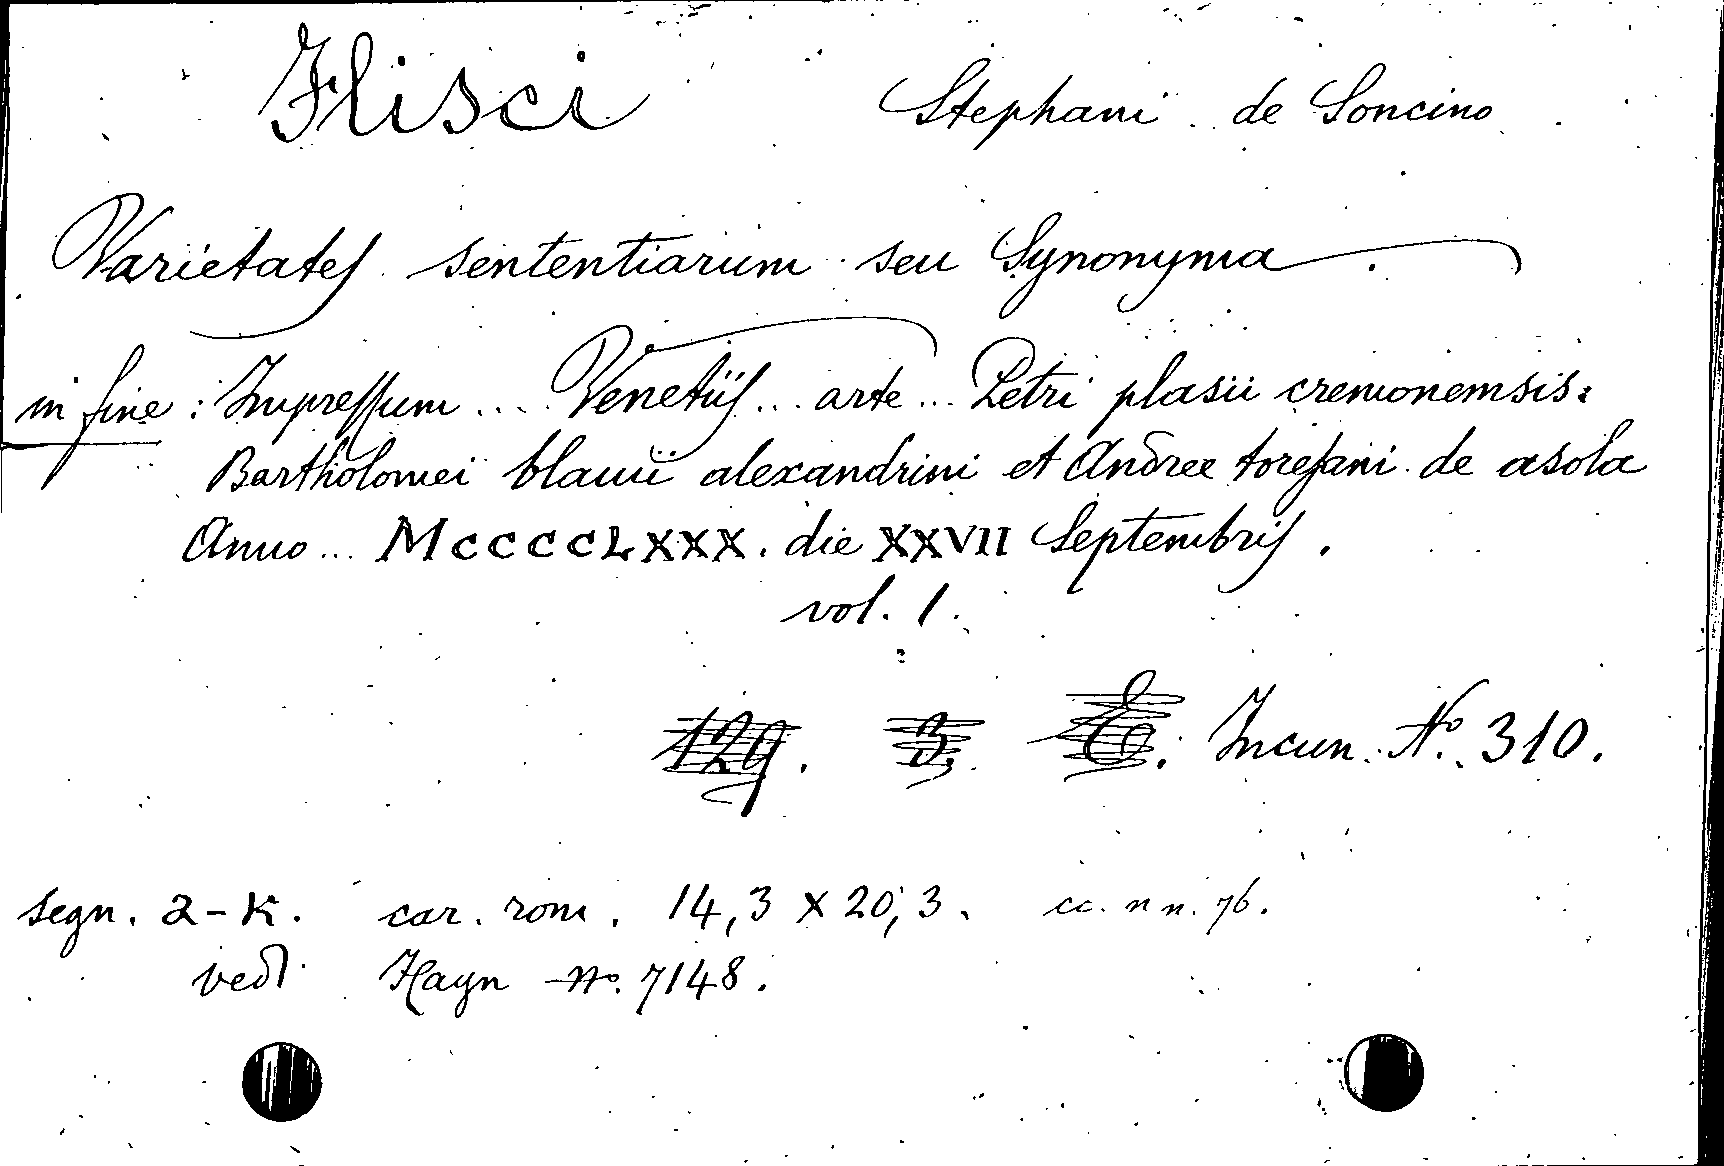 Flisci Stephani de Soncino
Varietates sententiarum seu Synonyma.
in fine: Impressum ... Venetiis ... arte ... Petri plasii cremonemsis:
Bartholomei blauii alexandrini et Andree toresani de asola
Anno ... MCCCCLXXX. die XXVII Septembris.
vol. 1.
129. 3. Incun. No. 310.
segn. a-k. car. rom. 14,3 x 20,3. cc. n n. 76.
vedi Hayn No. 7148.